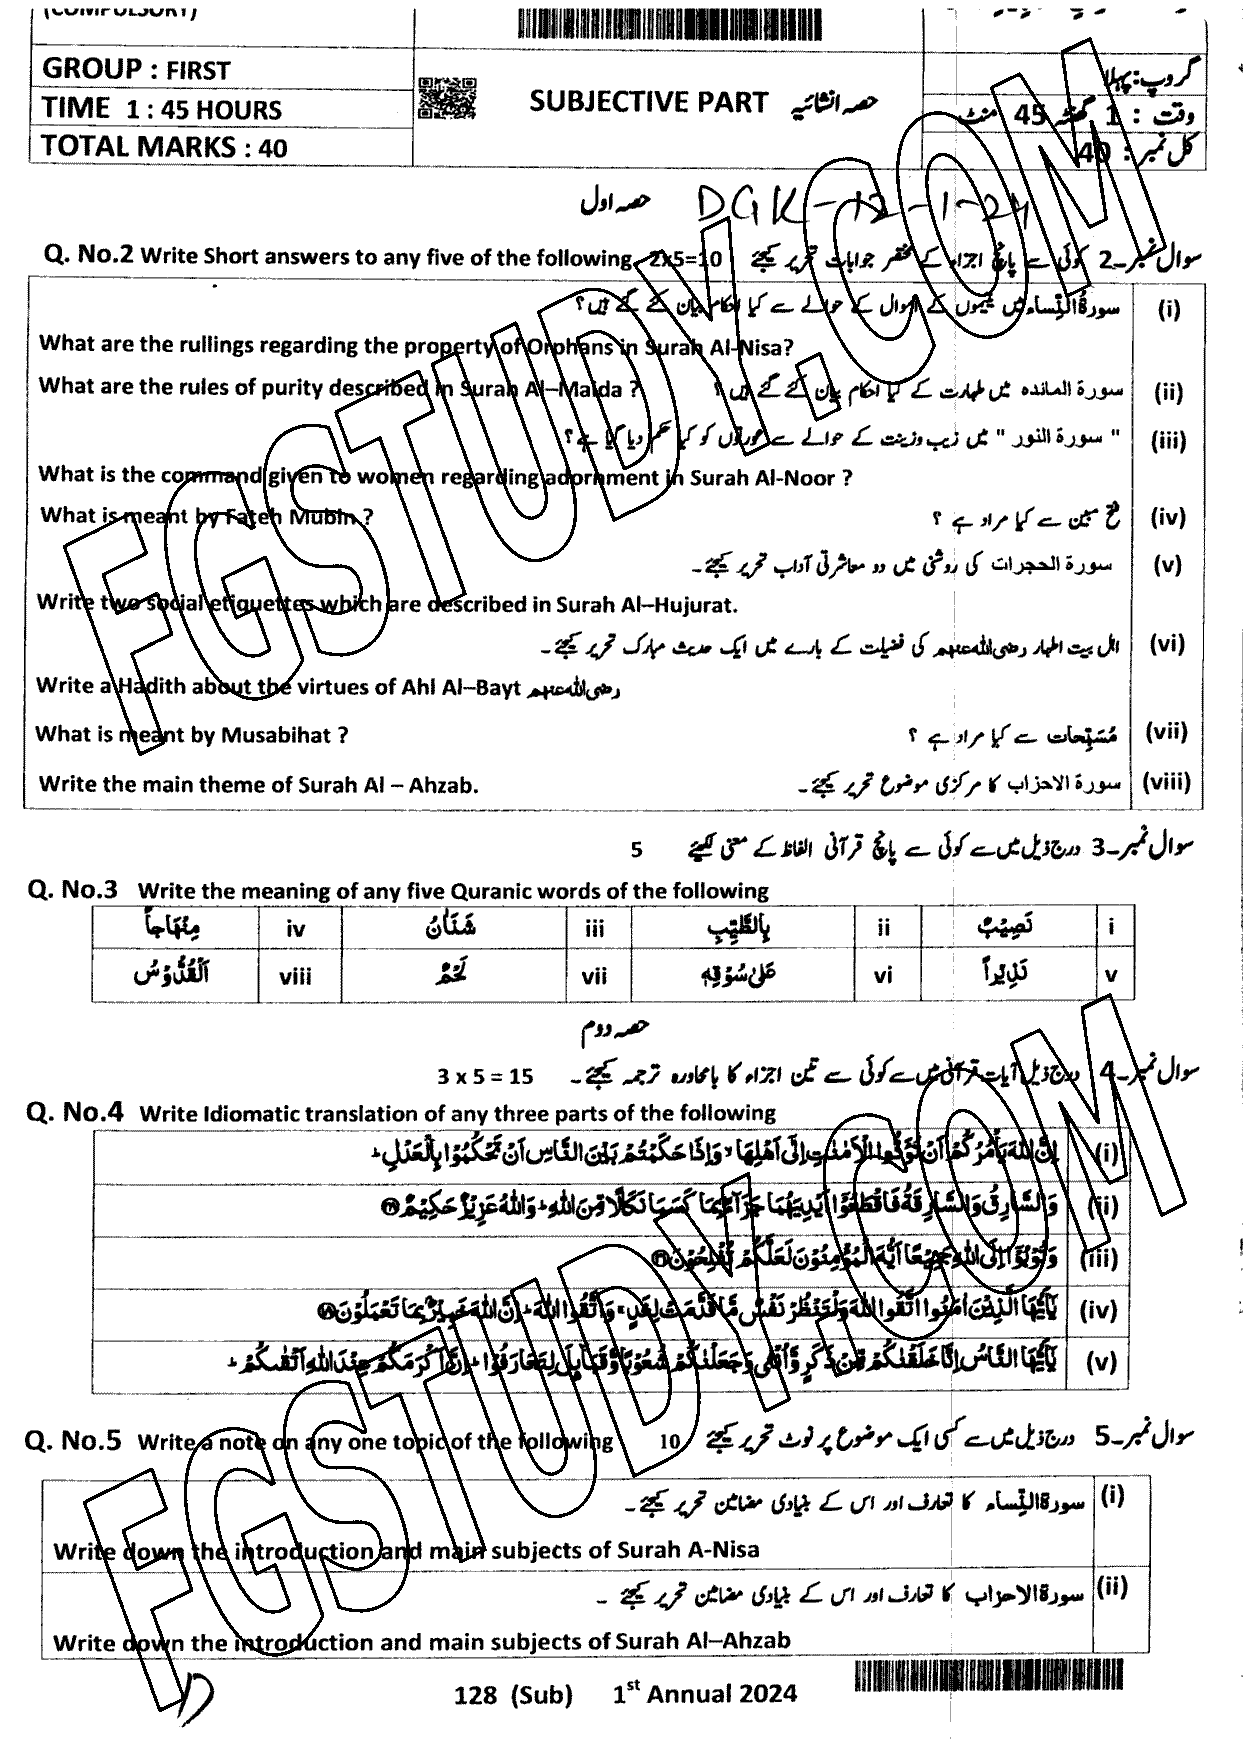 (COMPULSORY)
GROUP : FIRST
گروپ: پہلا
TIME 1 : 45 HOURS
SUBJECTIVE PART حصہ انشائیہ
وقت : 1 گھنٹہ 45 منٹ
TOTAL MARKS : 40
کل نمبر : 40
حصہ اول DGK-12-1-24
Q. No.2 Write Short answers to any five of the following 2x5=10 سوال نمبر۔2 کوئی سے پانچ اجزاء کے مختصر جوابات تحریر کیجئے
(i) سورۃ النِّساء میں یتیموں کے اموال کے حوالے سے کیا احکام بیان کئے گئے ہیں؟
What are the rullings regarding the property of Orphans in Surah Al-Nisa?
What are the rules of purity described in Surah Al–Maida ? (ii) سورۃ المائدہ میں طہارت کے کیا احکام بیان کئے گئے ہیں ؟
(iii) " سورۃ النور " میں زیب وزینت کے حوالے سے عورتوں کو کیا حکم دیا گیا ہے؟
What is the command given to women regarding adornment in Surah Al-Noor ?
What is meant by Fateh Mubin ? (iv) فتح مبین سے کیا مراد ہے ؟
(v) سورۃ الحجرات کی روشنی میں دو معاشرتی آداب تحریر کیجئے۔
Write two social etiquettes which are described in Surah Al–Hujurat.
(vi) اہل بیت اطہار رضی اللہ عنہم کی فضیلت کے بارے میں ایک حدیث مبارک تحریر کیجئے۔
Write a Hadith about the virtues of Ahl Al–Bayt رضی اللہ عنہم
What is meant by Musabihat ? (vii) مُسَبِّحات سے کیا مراد ہے ؟
Write the main theme of Surah Al – Ahzab. (viii) سورۃ الاحزاب کا مرکزی موضوع تحریر کیجئے۔
سوال نمبر۔3 درج ذیل میں سے کوئی سے پانچ قرآنی الفاظ کے معنی لکھئے 5
Q. No.3 Write the meaning of any five Quranic words of the following
i نَصِيْبٌ ii بِالطَّيِّبِ iii شَنَاٰنُ iv مِنْهَاجاً
v نَذِيْراً vi عَلٰى سُوْقِهٖ vii لَحْمَ viii اَلْقُدُّوْسُ
حصہ دوم
سوال نمبر۔4 درج ذیل آیات قرآنی میں سے کوئی سے تین اجزاء کا بامحاورہ ترجمہ کیجئے۔ 3 x 5 = 15
Q. No.4 Write Idiomatic translation of any three parts of the following
(i) اِنَّ اللّٰهَ يَاْمُرُكُمْ اَنْ تُؤَدُّوا الْاَمٰنٰتِ اِلٰٓى اَهْلِهَا ۙ وَاِذَا حَكَمْتُمْ بَيْنَ النَّاسِ اَنْ تَحْكُمُوْا بِالْعَدْلِ ؕ
(ii) وَالسَّارِقُ وَالسَّارِقَةُ فَاقْطَعُوْٓا اَيْدِيَهُمَا جَزَآءًۢ بِمَا كَسَبَا نَكَالًا مِّنَ اللّٰهِ ؕ وَاللّٰهُ عَزِيْزٌ حَكِيْمٌ ۳۸
(iii) وَتُوْبُوْٓا اِلَى اللّٰهِ جَمِيْعًا اَيُّهَ الْمُؤْمِنُوْنَ لَعَلَّكُمْ تُفْلِحُوْنَ ۳۱
(iv) يٰٓاَيُّهَا الَّذِيْنَ اٰمَنُوا اتَّقُوا اللّٰهَ وَلْتَنْظُرْ نَفْسٌ مَّا قَدَّمَتْ لِغَدٍ ۚ وَاتَّقُوا اللّٰهَ ؕ اِنَّ اللّٰهَ خَبِيْرٌۢ بِمَا تَعْمَلُوْنَ ۱۸
(v) يٰٓاَيُّهَا النَّاسُ اِنَّا خَلَقْنٰكُمْ مِّنْ ذَكَرٍ وَّاُنْثٰى وَجَعَلْنٰكُمْ شُعُوْبًا وَّقَبَآئِلَ لِتَعَارَفُوْا ؕ اِنَّ اَكْرَمَكُمْ عِنْدَ اللّٰهِ اَتْقٰىكُمْ ؕ
Q. No.5 Write a note on any one topic of the following 10 سوال نمبر۔5 درج ذیل میں سے کسی ایک موضوع پر نوٹ تحریر کیجئے
(i) سورۃ النِّساء کا تعارف اور اس کے بنیادی مضامین تحریر کیجئے۔
Write down the introduction and main subjects of Surah A-Nisa
(ii) سورۃ الاحزاب کا تعارف اور اس کے بنیادی مضامین تحریر کیجئے ۔
Write down the introduction and main subjects of Surah Al–Ahzab
128 (Sub) 1st Annual 2024
FGSTUDY.COM
FGSTUDY.COM